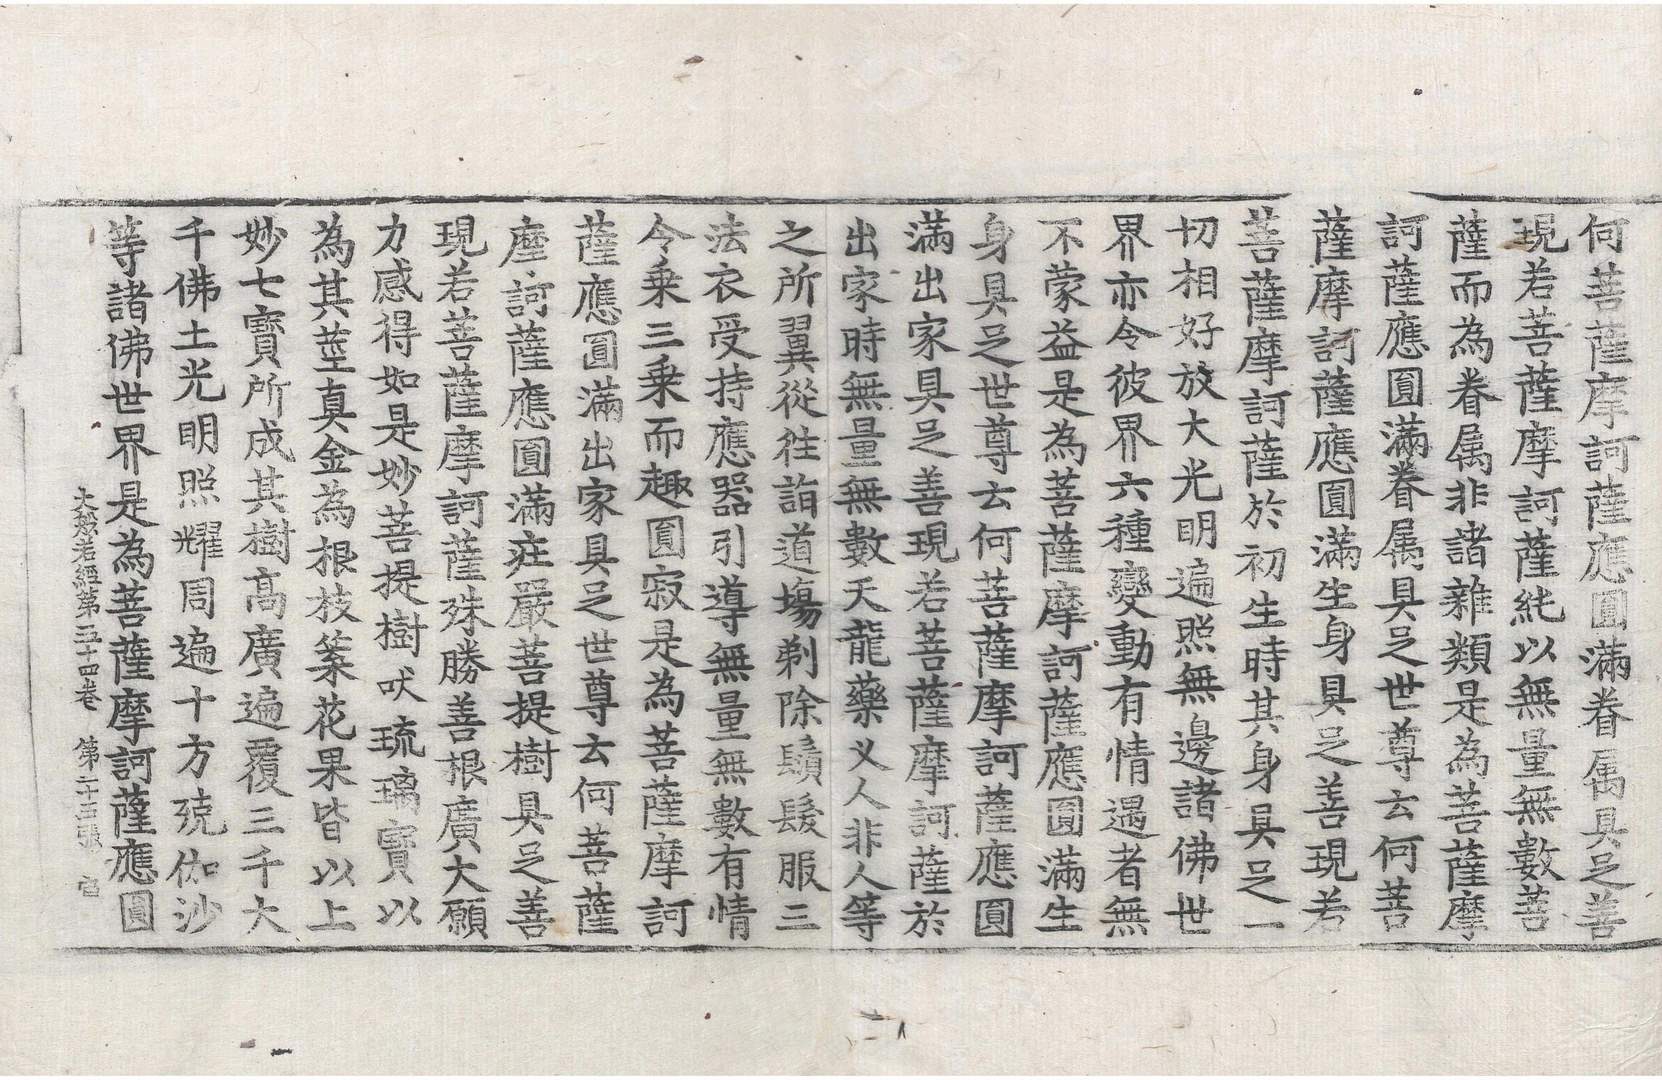 何菩薩摩訶薩應圓滿眷属具足善
現若菩薩摩訶薩純以無量無數菩
薩而為眷属非諸雜類是為菩薩摩
訶薩應圓滿眷属具足世尊云何菩
薩摩訶薩應圓滿生身具足善現若
菩薩摩訶薩於初生時其身具足一
切相好放大光明遍照無邊諸佛世
界亦令彼界六種變動有情遇者無
不蒙益是為菩薩摩訶薩應圓滿生
身具足世尊云何菩薩摩訶薩應圓
滿出家具足善現若菩薩摩訶薩於
出家時無量無數天龍藥义人非人等
之所翼從往詣道場剃除鬚髮服三
法衣受持應器引導無量無數有情
令乗三乗而趣圓寂是為菩薩摩訶
薩應圓滿出家具足世尊云何菩薩
摩訶薩應圓滿莊嚴菩提樹具足善
現若菩薩摩訶薩殊勝善根廣大願
力感得如是妙菩提樹吠琉璃寶以
為其莖真金為根枝葉花果皆以上
妙七寶所成其樹高廣遍覆三千大
千佛土光明照耀周遍十方殑伽沙
等諸佛世界是為菩薩摩訶薩應圓
大般若經第五十四卷 第二十三張 官